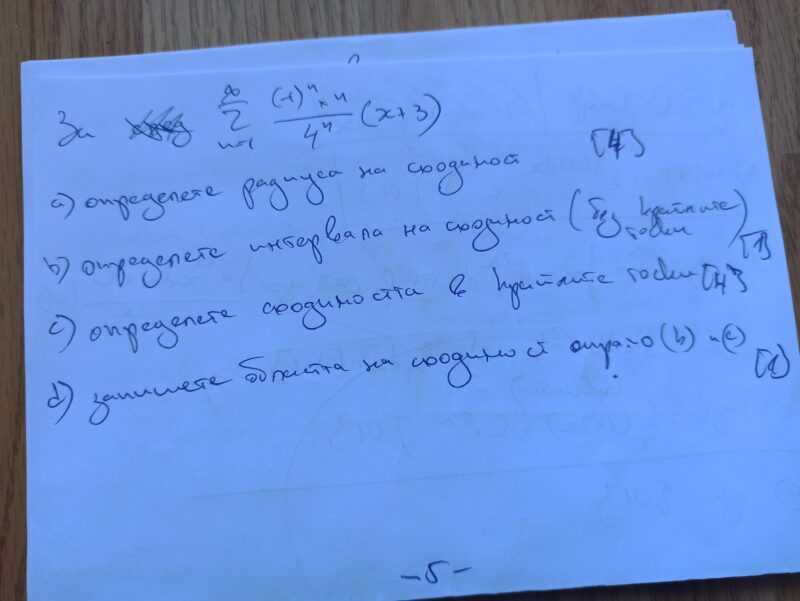 За ∑ n=1 ∞ (-1)ⁿ·n / 4ⁿ (x+3)
a) определете радиуса на сходимост [4]
b) определете интервала на сходимост (без крайните точки) [1]
c) определете сходимостта в крайните точки [4]
d) запишете областта на сходимост спрямо (b) и (c) [1]
-5-